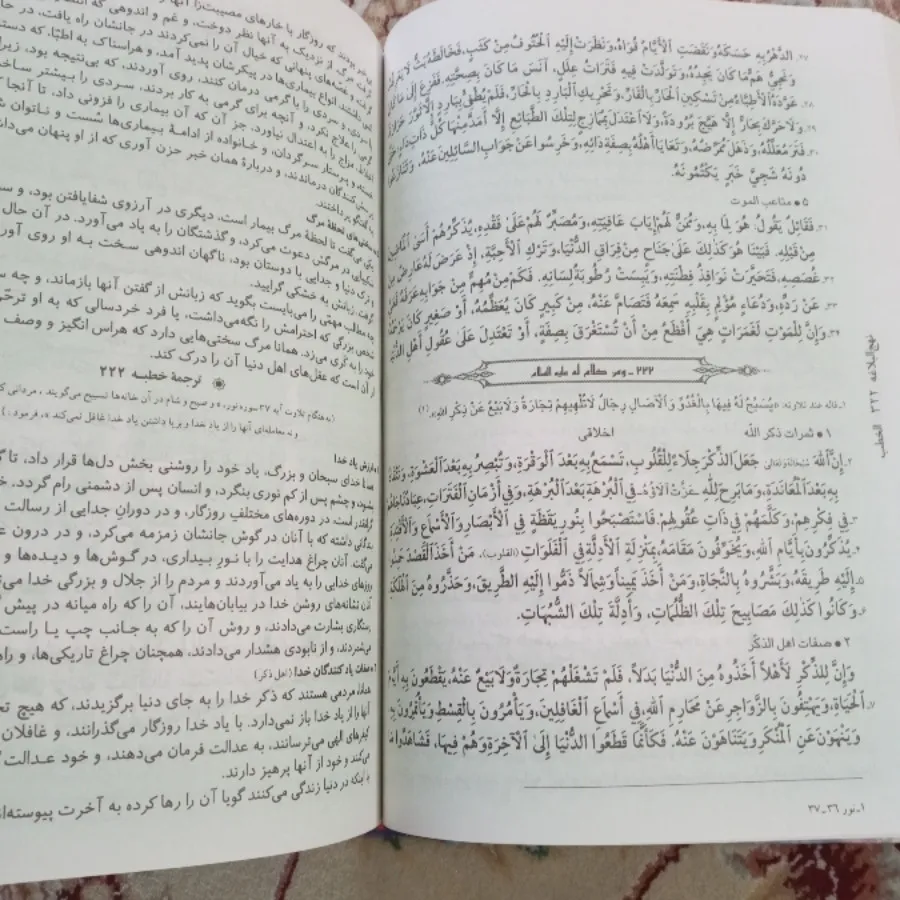 ۲۷. الدَّهْرُ بِهِ حَسَكَهُ وَنَقَضَتِ الْأَيَّامُ قُوَاهُ، وَنَظَرَتْ إِلَيْهِ الْحُتُوفُ مِنْ كَثَبٍ، فَخَالَطَهُ بَثٌّ لَا يَعْرِفُهُ
وَنَجِيُّ هَمٍّ مَا كَانَ يَجِدُهُ، وَتَوَلَّدَتْ فِيهِ فَتَرَاتُ عِلَلٍ، آنَسَ مَا كَانَ بِصِحَّتِهِ، فَفَزِعَ إِلَى مَا كَانَ
۲۸. عَوَّدَهُ الْأَطِبَّاءُ مِنْ تَسْكِينِ الْحَارِّ بِالْقَارِّ، وَتَحْرِيكِ الْبَارِدِ بِالْحَارِّ، فَلَمْ يُطْفِئْ بِبَارِدٍ إِلَّا ثَوَّرَ حَرَارَةً
۲۹. وَلَا حَرَّكَ بِحَارٍّ إِلَّا هَيَّجَ بُرُودَةً، وَلَا اعْتَدَلَ بِمُمَازِجٍ لِتِلْكَ الطَّبَائِعِ إِلَّا أَمَدَّ مِنْهَا كُلَّ ذَاتِ دَاءٍ
۳۰. فَتَرَ مُعَلِّلُهُ، وَذَهَلَ مُمَرِّضُهُ، وَتَعَايَا أَهْلُهُ بِصِفَةِ دَائِهِ، وَخَرِسُوا عَنْ جَوَابِ السَّائِلِينَ عَنْهُ، وَتَنَازَعُوا
دُونَهُ شَجِيَّ خَبَرٍ يَكْتُمُونَهُ.
۵ • متاعب الموت
۳۱. فَقَائِلٌ يَقُولُ: هُوَ لِمَا بِهِ، وَمُمَنٍّ لَهُمْ إِيَابَ عَافِيَتِهِ، وَمُصَبِّرٌ لَهُمْ عَلَى فَقْدِهِ، يُذَكِّرُهُمْ أُسَى الْمَاضِينَ
مِنْ قَبْلِهِ. فَبَيْنَا هُوَ كَذلِكَ عَلَى جَنَاحٍ مِنْ فِرَاقِ الدُّنْيَا، وَتَرْكِ الْأَحِبَّةِ، إِذْ عَرَضَ لَهُ عَارِضٌ مِنْ
۳۲. غُصَصِهِ، فَتَحَيَّرَتْ نَوَافِذُ فِطْنَتِهِ، وَيَبِسَتْ رُطُوبَةُ لِسَانِهِ. فَكَمْ مِنْ مُهِمٍّ مِنْ جَوَابِهِ عَرَفَهُ
۳۳. عَنْ رَدِّهِ، وَدُعَاءٍ مُؤْلِمٍ بِقَلْبِهِ سَمِعَهُ فَتَصَامَّ عَنْهُ، مِنْ كَبِيرٍ كَانَ يُعَظِّمُهُ، أَوْ صَغِيرٍ كَانَ يَرْحَمُهُ
۳۴. وَإِنَّ لِلْمَوْتِ لَغَمَرَاتٍ هِيَ أَفْظَعُ مِنْ أَنْ تُسْتَغْرَقَ بِصِفَةٍ، أَوْ تَعْتَدِلَ عَلَى عُقُولِ أَهْلِ الدُّنْيَا
۲۲۲ ـ ومن كلام له عليه السلام
۱ـ قاله عند تلاوته: «يُسَبِّحُ لَهُ فِيهَا بِالْغُدُوِّ وَالْآصَالِ رِجَالٌ لَا تُلْهِيهِمْ تِجَارَةٌ وَلَا بَيْعٌ عَنْ ذِكْرِ اللَّهِ» (۱)
۱ • ثمرات ذكر الله
اخلاقی
۲ـ إِنَّ اللهَ سُبْحَانَهُ وَتَعَالَى جَعَلَ الذِّكْرَ جِلَاءً لِلْقُلُوبِ، تَسْمَعُ بِهِ بَعْدَ الْوَقْرَةِ، وَتُبْصِرُ بِهِ بَعْدَ الْعَشْوَةِ، وَتَنْقَادُ
بِهِ بَعْدَ الْمُعَانَدَةِ، وَمَا بَرِحَ لِلَّهِ عَزَّتْ آلَاؤُهُ فِي الْبُرْهَةِ بَعْدَ الْبُرْهَةِ، وَفِي أَزْمَانِ الْفَتَرَاتِ، عِبَادٌ نَاجَاهُمْ
۳ـ فِي فِكْرِهِمْ، وَكَلَّمَهُمْ فِي ذَاتِ عُقُولِهِمْ. فَاسْتَصْبَحُوا بِنُورِ يَقَظَةٍ فِي الْأَبْصَارِ وَالْأَسْمَاعِ وَالْأَفْئِدَةِ
۴ـ يُذَكِّرُونَ بِأَيَّامِ اللهِ، وَيُخَوِّفُونَ مَقَامَهُ، بِمَنْزِلَةِ الْأَدِلَّةِ فِي الْفَلَوَاتِ (القلوب). مَنْ أَخَذَ الْقَصْدَ حَمِدُوا
۵ـ إِلَيْهِ طَرِيقَهُ، وَبَشَّرُوهُ بِالنَّجَاةِ، وَمَنْ أَخَذَ يَمِيناً وَشِمَالاً ذَمُّوا إِلَيْهِ الطَّرِيقَ، وَحَذَّرُوهُ مِنَ الْهَلَكَةِ
۶ـ وَكَانُوا كَذلِكَ مَصَابِيحَ تِلْكَ الظُّلُمَاتِ، وَأَدِلَّةَ تِلْكَ الشُّبُهَاتِ.
۲ • صفات اهل الذكر
وَإِنَّ لِلذِّكْرِ لَأَهْلاً أَخَذُوهُ مِنَ الدُّنْيَا بَدَلاً، فَلَمْ تَشْغَلْهُمْ تِجَارَةٌ وَلَا بَيْعٌ عَنْهُ، يَقْطَعُونَ بِهِ أَيَّامَ
۷ـ الْحَيَاةِ، وَيَهْتِفُونَ بِالزَّوَاجِرِ عَنْ مَحَارِمِ اللهِ، فِي أَسْمَاعِ الْغَافِلِينَ، وَيَأْمُرُونَ بِالْقِسْطِ وَيَأْتَمِرُونَ بِهِ
وَيَنْهَوْنَ عَنِ الْمُنْكَرِ وَيَتَنَاهَوْنَ عَنْهُ. فَكَأَنَّمَا قَطَعُوا الدُّنْيَا إِلَى الْآخِرَةِ وَهُمْ فِيهَا، فَشَاهَدُوا مَا
۱ـ نور ۳۶ـ۳۷
نهج البلاغه ۳۲۲ الخطب
گرفت و غصه‌های پنهانی که خیال آن را نمی‌کردند در جانشان راه یافت، در حا
داشتند، انواع بیماری‌ها در پیکرشان پدید آمد، و هراسناک به اطبّا، که دست
با سردی، و سردی را با گرمی درمان کنند، روی آوردند، که بی‌نتیجه بود، زیرا
گرمی را علاج نکرد، و آنچه برای گرمی به کار بردند، سردی را بیشتر ساخ
مزاج را به اعتدال نیاورد، جز آن که آن بیماری را فزونی داد، تا آنجا
و پرستار سرگردان، و خانواده از ادامهٔ بیماری‌ها سُست و ناتوان ش
کنندگان درماندند، و دربارهٔ همان خبر حزن آوری که از او پنهان می‌داش
پرداختند.
سختی‌های لحظهٔ مرگ
یکی می‌گفت تا لحظهٔ مرگ بیمار است، دیگری در آرزوی شفایافتن بود، و س
شکیبایی در مرگش دعوت می‌کرد، و گذشتگان را به یاد می‌آورد. در آن حال
ترک دنیا و جدایی با دوستان بود، ناگهان اندوهی سخت به او روی آور
گرفت، زبانش به خشکی گرایید.
چه مطالب مهمّی را می‌بایست بگوید که زبانش از گفتن آنها بازماند، و چه س
شخص بزرگی که احترامش را نگه می‌داشت، یا فرد خردسالی که به او ترحّم
خود را به کَری می‌زد. همانا مرگ سختی‌هایی دارد که هراس انگیز و وصف
از آن است که عقل‌های اهل دنیا آن را درک کند.
ترجمهٔ خطبه ۲۲۲
(به هنگام تلاوت آیه ۳۷ سوره نور، « و صبح و شام در آن خانه‌ها تسبیح می‌گویند ، مردانی که
و نه معامله‌ای آنها را از یاد خدا و برپا داشتن یاد خدا غافل نمی‌کند » ، فرمود : )
۱ • ارزش یاد خدا
همانا خدای سبحان و بزرگ، یاد خود را روشنی بخش دل‌ها قرار داد، تا گ
بشنود، و چشم پس از کم نوری بنگرد، و انسان پس از دشمنی رام گردد. خ
گرانقدر است در دوره‌های مختلف روزگار، و در دوران جدایی از رسالت
بندگانی داشته که با آنان در گوش جانشان زمزمه می‌کرد، و در درون ع
می‌گفت. آنان چراغ هدایت را با نور بیداری، در گوش‌ها و دیده‌ها و
روزهای خدایی را به یاد می‌آوردند و مردم را از جلال و بزرگی خدا می‌ت
آنان نشانه‌های روشن خدا در بیابان‌هایند، آن را که راه میانه در پیش
رستگاری بشارت می‌دادند، و روش آن را که به جانب چپ یا راست
می‌شمردند، و از نابودی هشدار می‌دادند، همچنان چراغ تاریکی‌ها، و راه
۲ • صفات یاد کنندگان خدا (اهل ذکر)
همانا مردمی هستند که ذکر خدا را به جای دنیا برگزیدند، که هیچ تج
آنها را از یاد خدا باز نمی‌دارد. با یاد خدا روزگار می‌گذرانند، و غافلان
کیفرهای الهی می‌ترسانند، به عدالت فرمان می‌دهند، و خود عدالت
می‌کنند و خود از آنها پرهیز دارند.
با اینکه در دنیا زندگی می‌کنند گویا آن را رها کرده به آخرت پیوسته‌اند